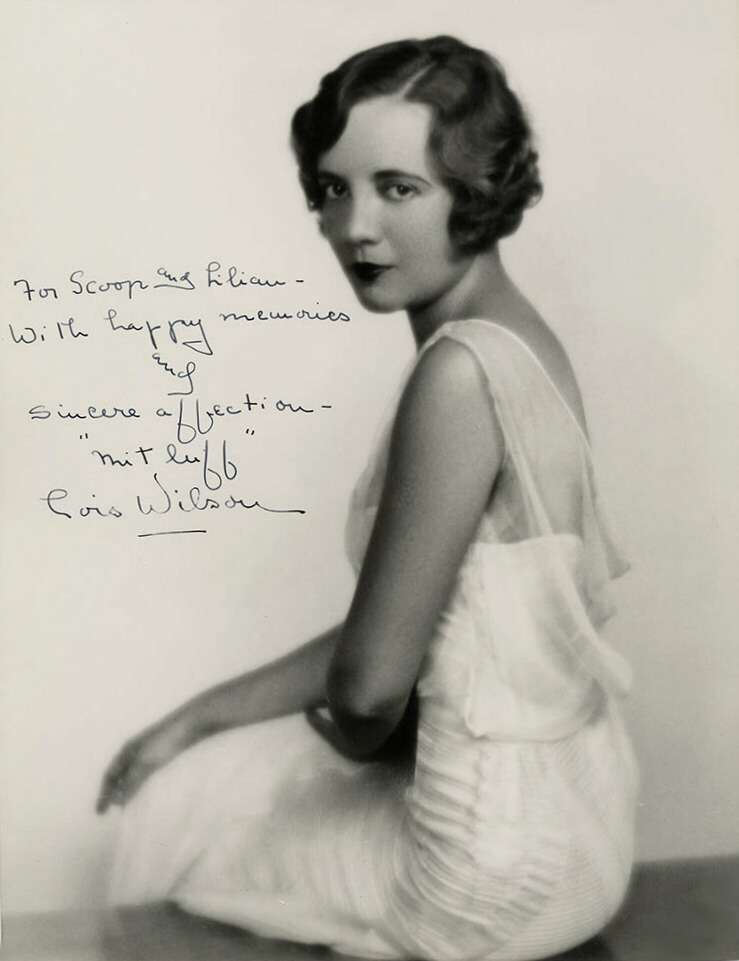 For Scoop and Lilian -
With happy memories
and
sincere affection -
"mit luff"
Lois Wilson